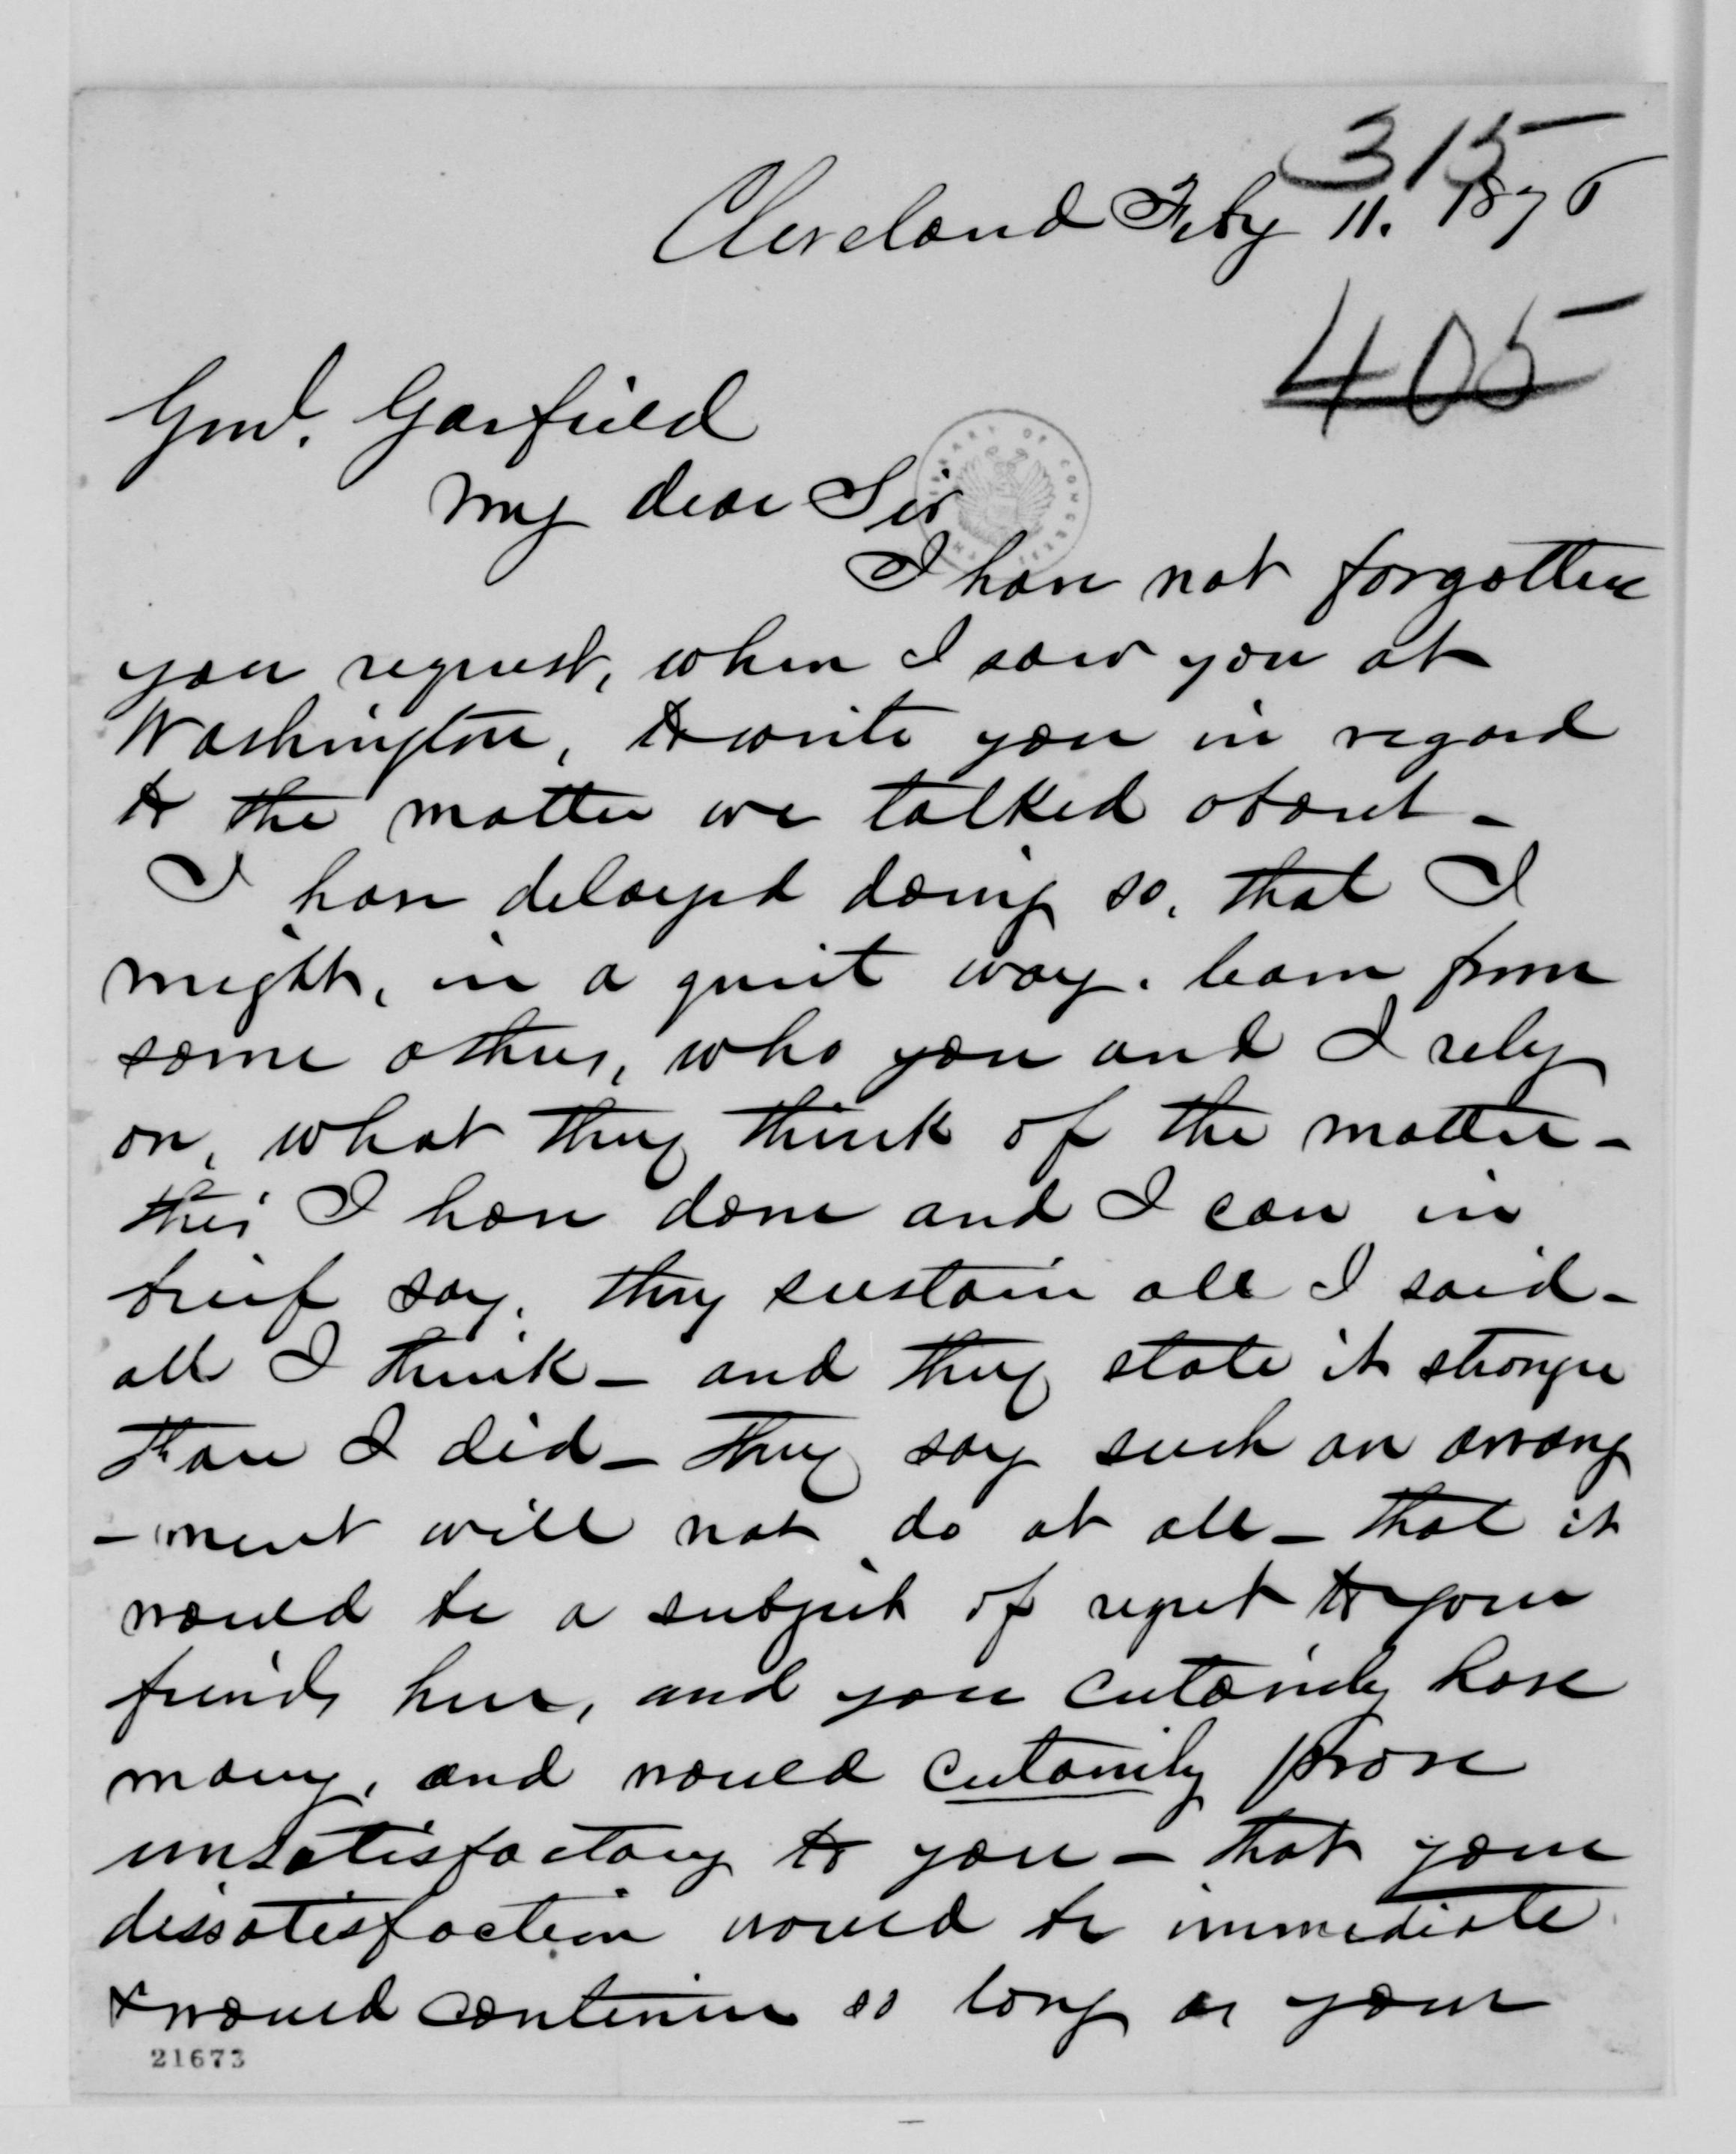 315
Cleveland Feby 11. 1876
405
Genl. Garfield
My dear Sir
LIBRARY OF CONGRESS
I have not forgotten
your request, when I saw you at
Washington, to write you in regard
to the matter we talked about -
I have delayed doing so, that I
might, in a quiet way, learn from
some others, who you and I rely
on, what they think of the matter -
this I have done and I can in
brief say, they sustain all I said -
all I think - and they state it stronger
than I did - they say such an arrang
- ment will not do at all - that it
would be a subject of regret to your
friends here, and you certainly have
many, and would certainly prove
unsatisfactory to you - that your
dissatisfaction would be immediate
& would continue so long as your
21673